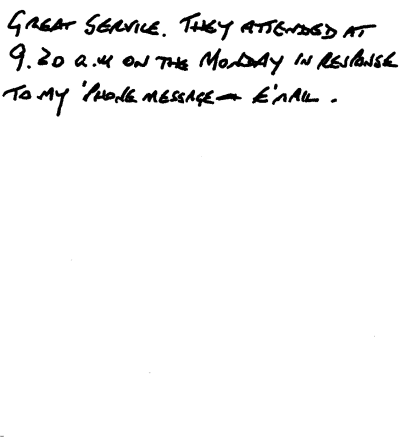 GREAT SERVICE. THEY ATTENDED AT
9.20 a.m ON THE MONDAY IN RESPONSE
TO MY 'PHONE MESSAGE E'MAIL.